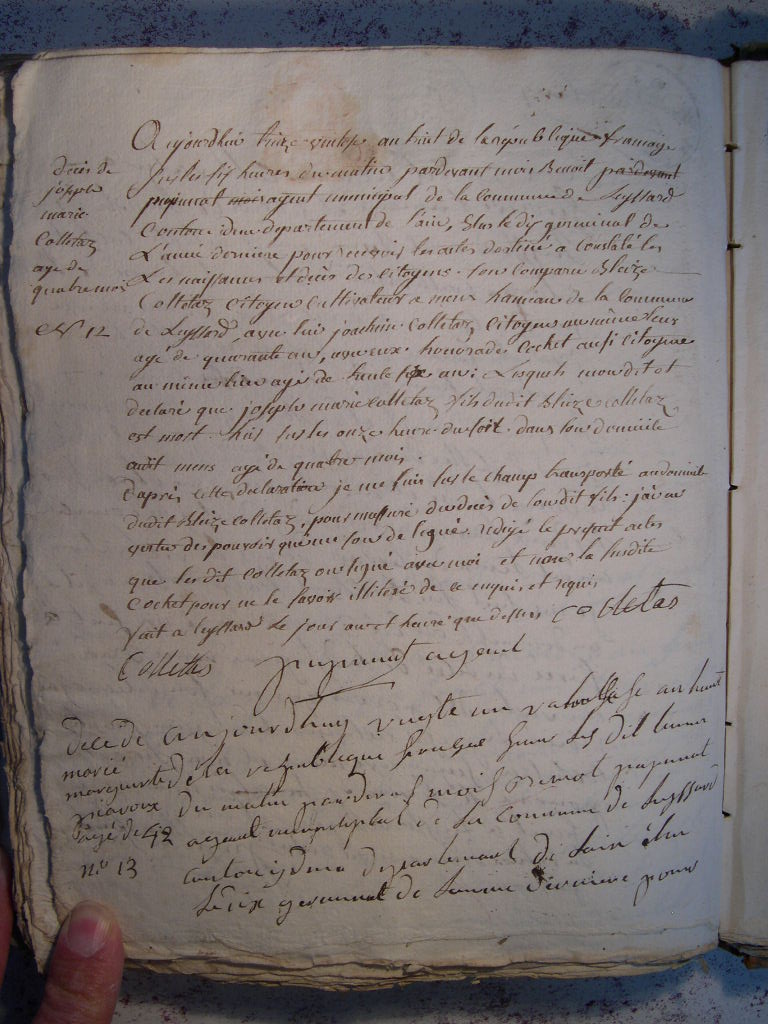 Aujourdhui treize ventose an huit de la république françaize
sur les six heures du matin pardevant mois Benoit pardevant
pupunat moi agent municipal de la Commune de Leyssard
Canton idem departement de l'ain, Elus le dix germinal de
L'anné derniere pour recevoir les actes destiné a constaté les
Les naissances et décès des citoyens. son comparu Bleize
Colletaz Citoyen Cultivateur a mens hameau de la Commune
de Leyssard, avec lui joachim Colletaz Citoyen au même lieux
agé de quarante an, avec eux honoré cocket aussi Citoyene
au même lieu agé de trente six an: Lesquels mon dit et
declaré que joseph marie Colletaz fils dudit Bleize colletaz
est mort hier sur les onze heure du soir dans son domicile
audit mens agé de quatre mois.
d'après cette declaration je me suis sur le champ transporté au domicile
dudit Bleize Colletaz, pour massuré du décès de son dit fils: j'ai en
vertu des pouvoir qui me son delegué. redigé le present actes
que les dit Colletaz on signé avec moi et non la susdite
Cocket pour ne le savoir illiteré de ce enquis et requis
fait a leyssard Le jour an et heure que dessus Colletas
Colletas pupunat agent
décès de
joseph
marie
Colletaz
age de
quatre mois
N 12
aujourdhuy vingte un vantosse an huit
de la republique franse sur les dit heures
du matin pardevant mois Benoit pupunat
agent munisipal de la Commune de Leyssard
canton idem departement de l'ain élu
le dix germinal de l'annee derniere pour
décé de
marie
marguerite
age de 42
n.o 13